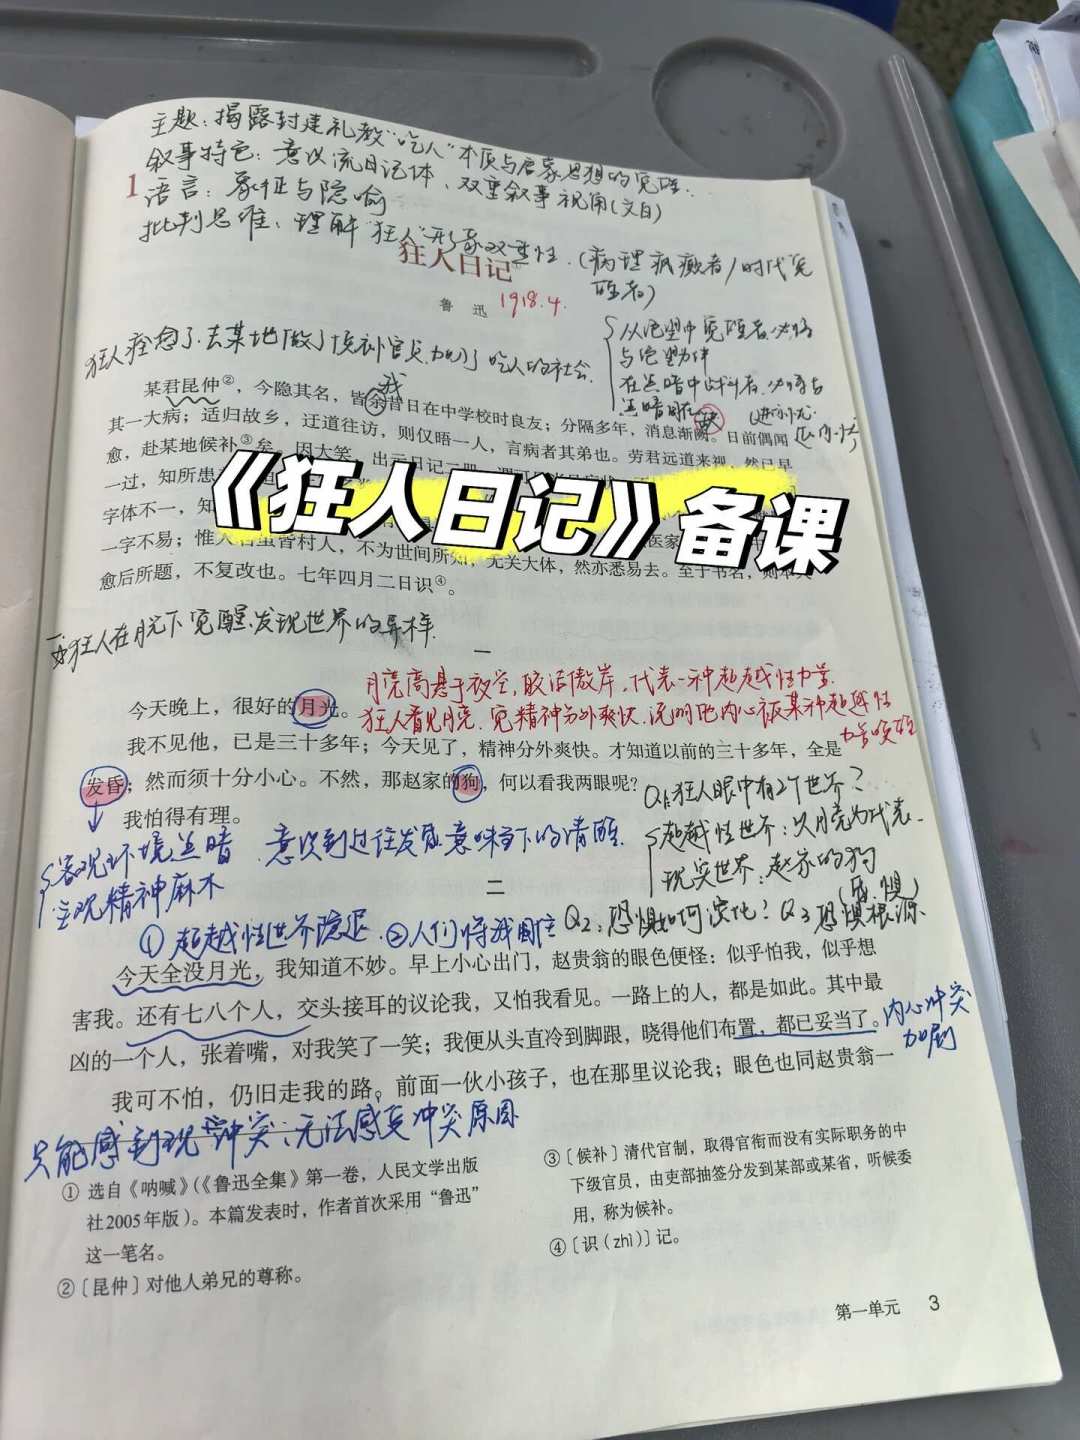 主题：揭露封建礼教"吃人"本质与启蒙思想的觉醒.
叙事特色：意识流日记体、双重叙事视角(文白)
1
语言：象征与隐喻
批判思维、理解"狂人"形象双重性.(病理疯癫者/时代觉醒者)
狂人日记①
鲁 迅 1918.4.
狂人痊愈了.去某地做了候补官员,加入了吃人的社会.
从绝望中觉醒者,
与绝望为伴
在黑暗中战斗者,
我
某君昆仲②，今隐其名，皆余昔日在中学校时良友；分隔多年，消息渐阙。日前偶闻
其一大病；适归故乡，迂道往访，则仅晤一人，言病者其弟也。劳君远道来视，然已早
愈，赴某地候补③矣。因大笑，出示日记二册，
一过，知所患
《狂人日记》备课
字体不一，知
医家
一字不易；惟人名虽皆村人，不为世间所知，无关大体，然亦悉易去。至于书名，则本人
愈后所题，不复改也。七年四月二日识④。
狂人在月光下觉醒、发现世界的异样.
一
月亮高悬于夜空,皎洁傲岸.代表一种超越性力量.
今天晚上，很好的月光。
狂人看见月亮.觉精神分外爽快.说明他内心被某种超越性力量唤醒
我不见他，已是三十多年；今天见了，精神分外爽快。才知道以前的三十多年，全是
发昏；然而须十分小心。不然，那赵家的狗，何以看我两眼呢？
我怕得有理。
Q1:狂人眼中有2个世界？
超越性世界：以月亮为代表.
现实世界：赵家的狗
(恐惧)
客观环境黑暗
主观精神麻木
意识到过往发昏意味当下的清醒.
二
Q2:恐惧如何演化？Q3恐惧根源.
①超越性世界隐退.②人们将我围住
今天全没月光，我知道不妙。早上小心出门，赵贵翁的眼色便怪：似乎怕我，似乎想
害我。还有七八个人，交头接耳的议论我，又怕我看见。一路上的人，都是如此。其中最
凶的一个人，张着嘴，对我笑了一笑；我便从头直冷到脚跟，晓得他们布置，都已妥当了。
内心冲突加剧
我可不怕，仍旧走我的路。前面一伙小孩子，也在那里议论我；眼色也同赵贵翁一
只能感到现世冲突；无法感受冲突原因
① 选自《呐喊》（《鲁迅全集》第一卷，人民文学出版
社2005年版）。本篇发表时，作者首次采用"鲁迅"
这一笔名。
②〔昆仲〕对他人弟兄的尊称。
③〔候补〕清代官制，取得官衔而没有实际职务的中
下级官员，由吏部抽签分发到某部或某省，听候委
用，称为候补。
④〔识（zhì）〕记。
第一单元 3